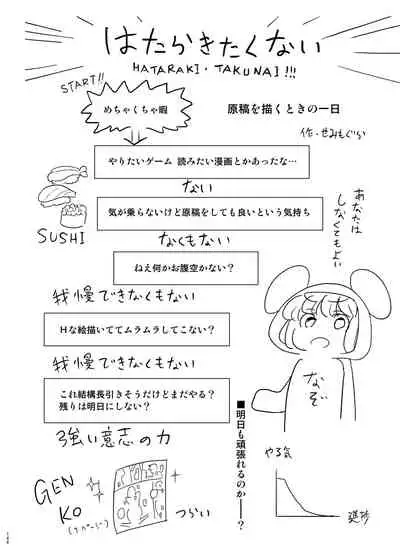 はたらきたくない
HATARAKI・TAKUNAI!!!
START!!
めちゃくちゃ暇
原稿を描くときの一日
作・せみもぐら
やりたいゲーム 読みたい漫画とかあったな…
ない
気が乗らないけど原稿をしても良いという気持ち
SUSHI
なくもない
あなたは
しなくてもよい
ねえ何かお腹空かない？
我慢できなくもない
Hな絵描いててムラムラしてこない？
我慢できなくもない
なぞ
これ結構長引きそうだけどまだやる？
残りは明日にしない？
強い意志の力
■明日も頑張れるのか――？
やる気
進捗
GEN
KO
つらい